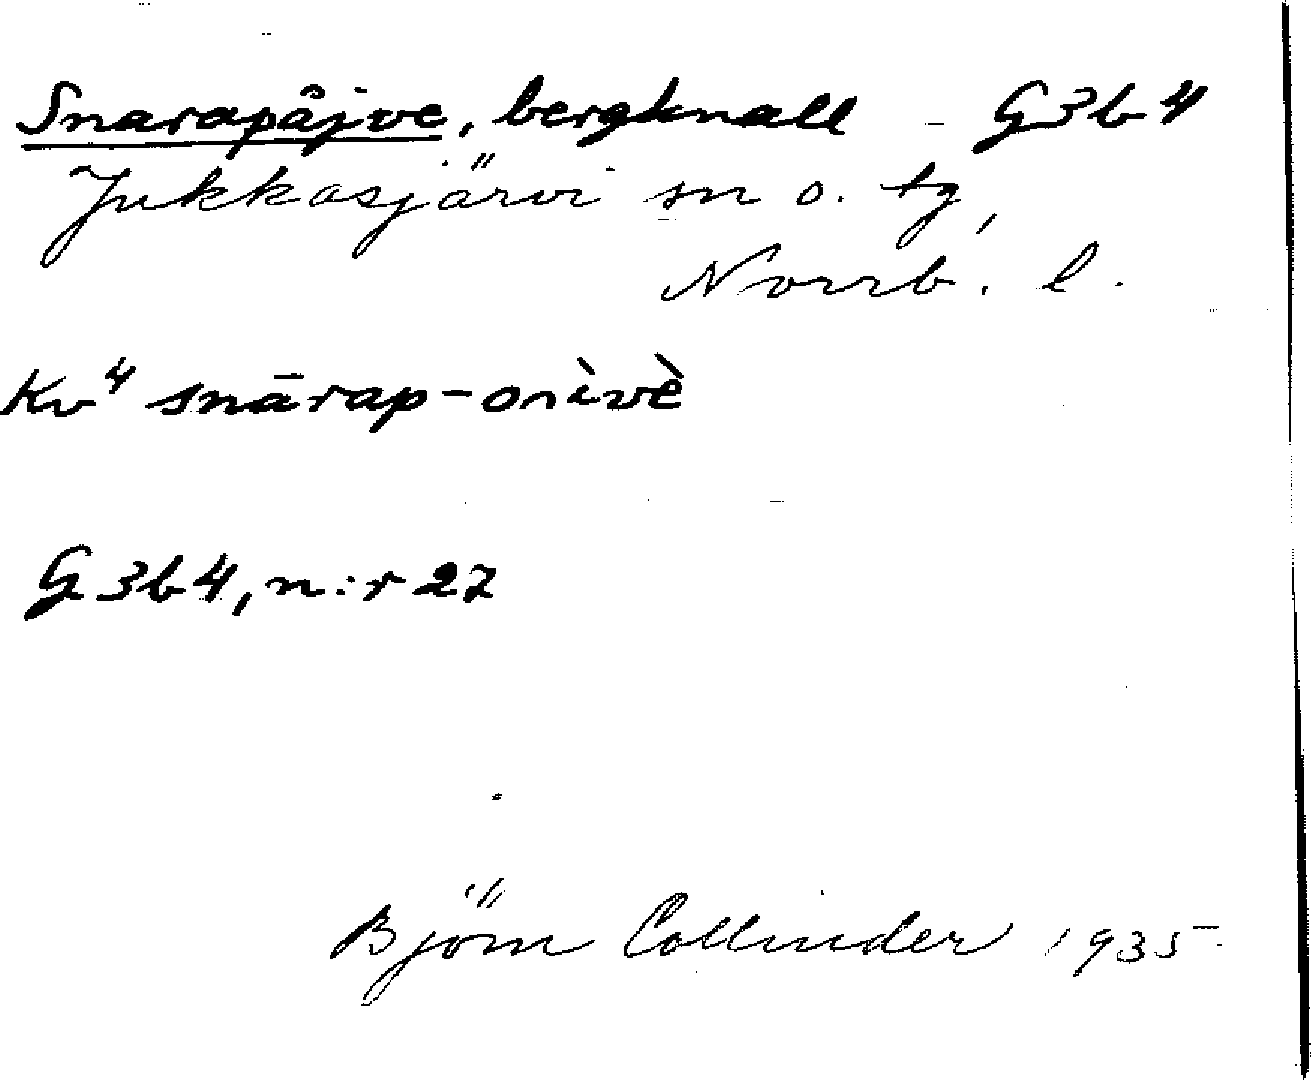 Snarapåjve, bergknall - G3b4
Jukkasjärvi sn o. tg,
Norrb. l.
Kv⁴ snārap-oàìvè
G3b4, n:r 27
Björn Collinder 1935